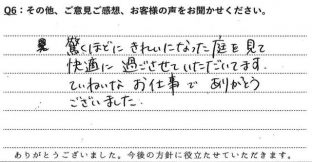 Q6：その他、ご意見ご感想、お客様の声をお聞かせください。
驚くほどに きれいになった 庭を 見て
快適に 過ごさせていただいてます。
ていねいな お仕事で ありがとう
ございました。
ありがとうございました。今後の方針に役立たせていただきます。